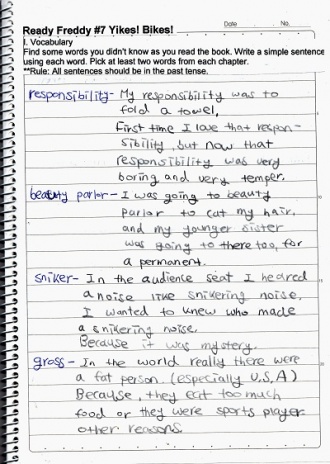 Date No.
Ready Freddy #7 Yikes! Bikes!
I. Vocabulary
Find some words you didn't know as you read the book. Write a simple sentence
using each word. Pick at least two words from each chapter.
**Rule: All sentences should be in the past tense.
responsibility- My responsibility was to
fold a towel.
First time I love that respon-
sibility, but now that
responsibility was very
boring and very temper.
beauty parlor - I was going to beauty
parlor to cut my hair.
and my younger sister
was going to there too, for
a permanent.
sniker- In the audience seat I heared
a noise like snikering noise.
I wanted to knew who made
a snikering noise.
Because it was mystery.
gross- In the world really there were
a fat person. (especially U.S.A)
Because, they eat too much
food or they were sports player
other reasons